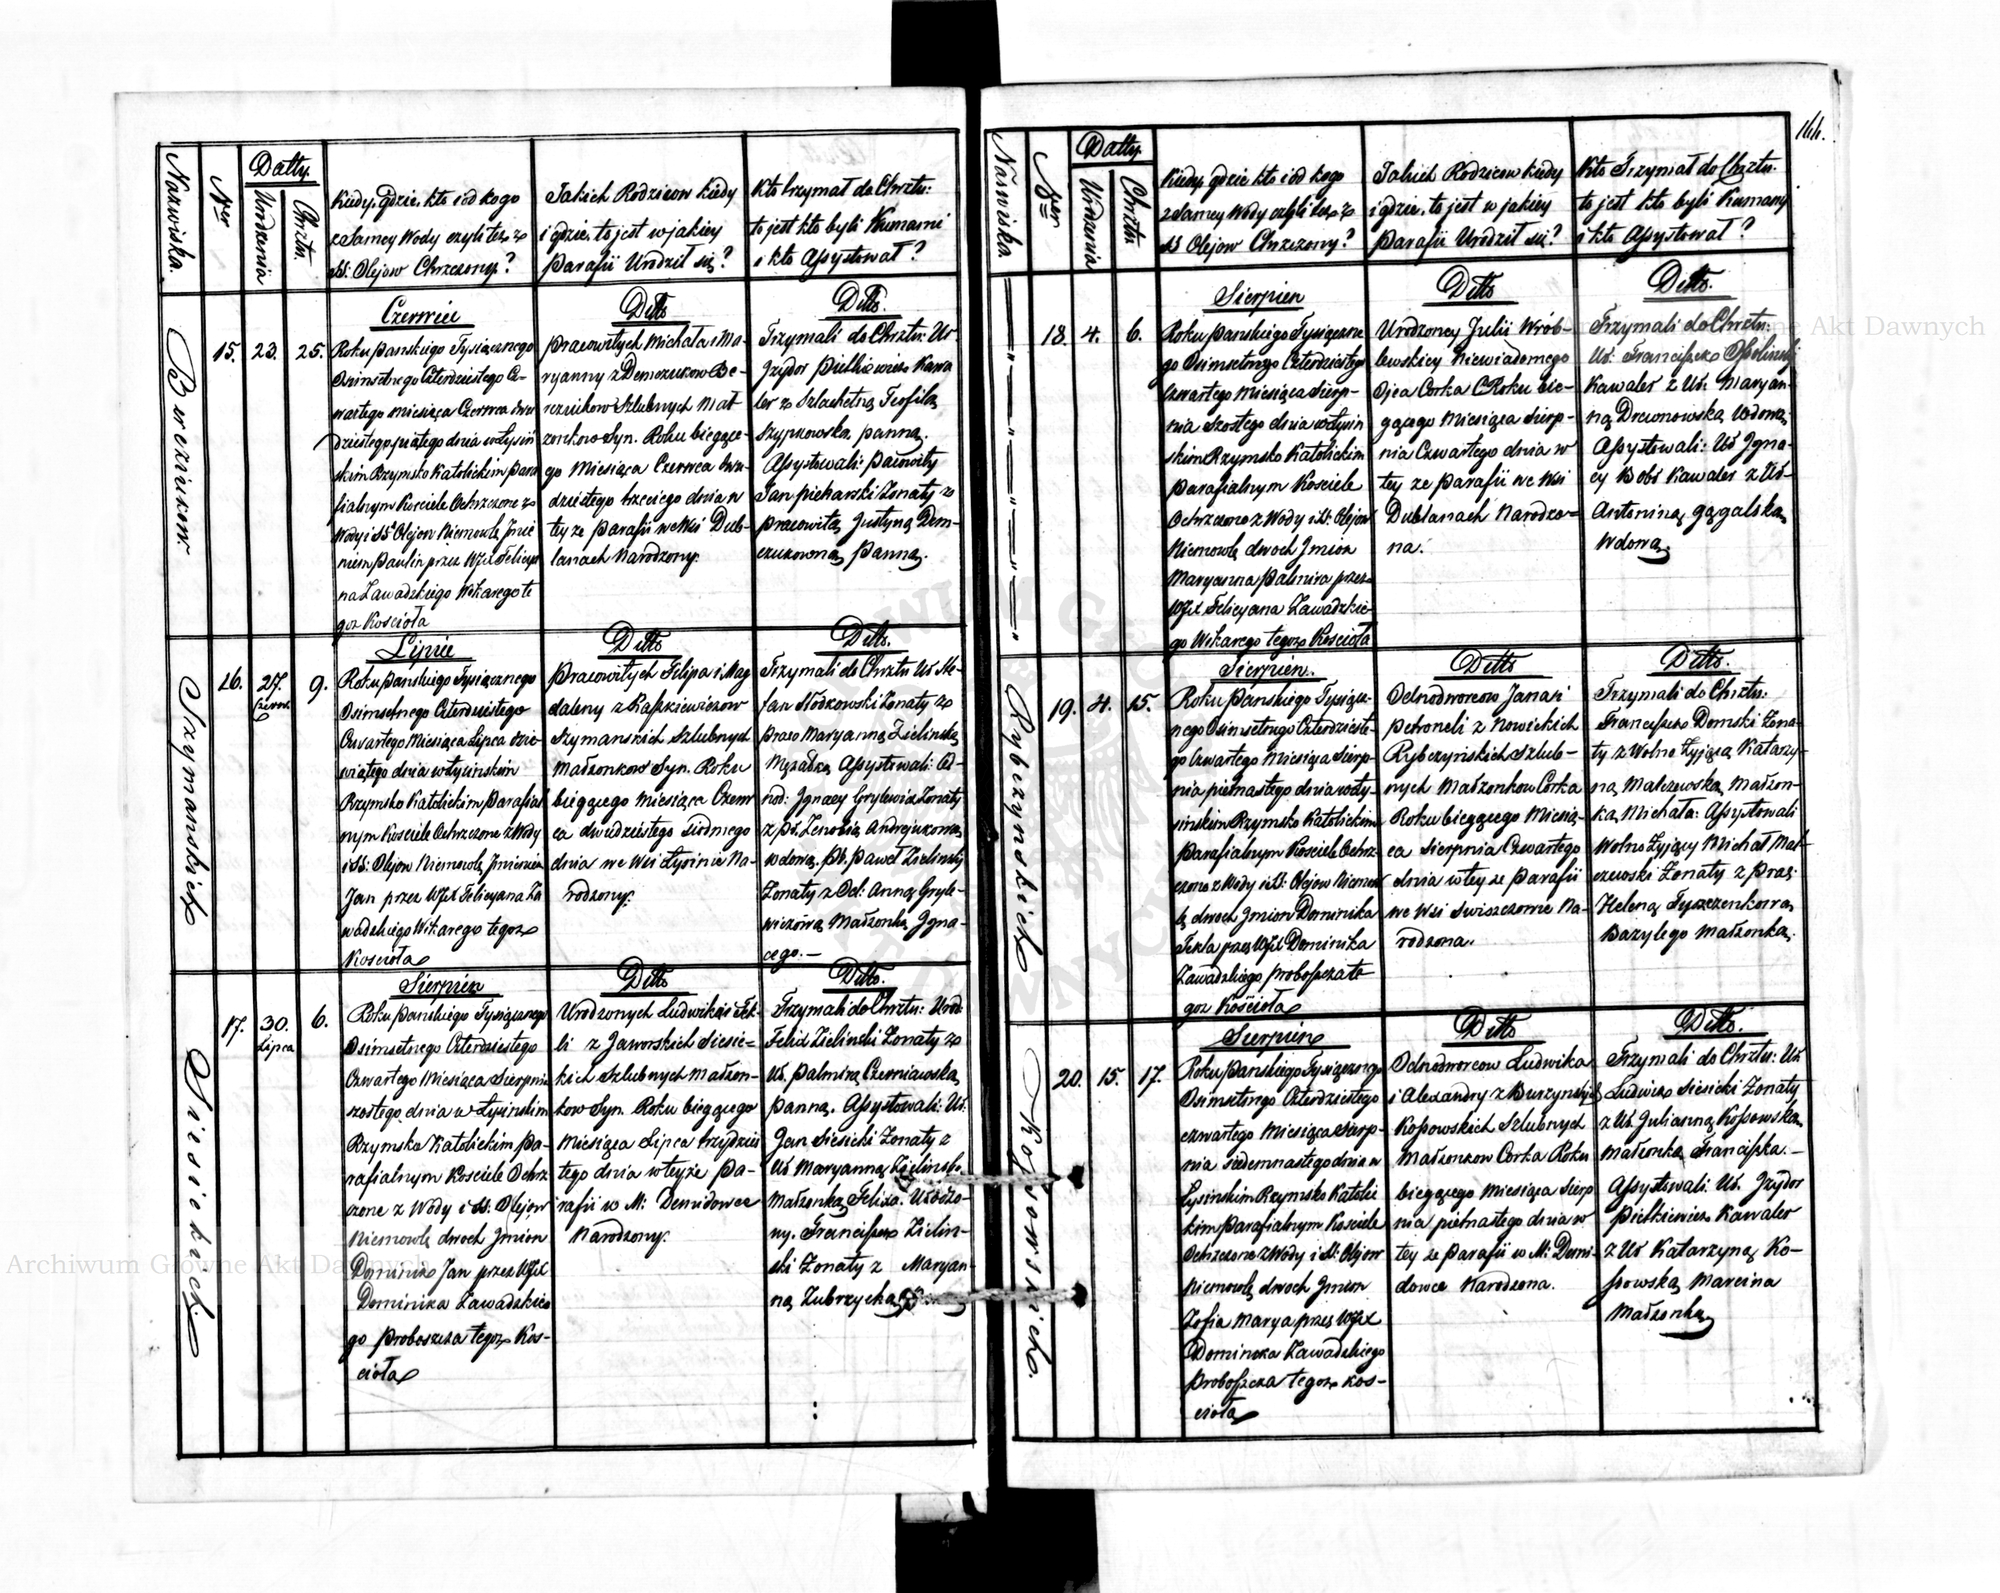 Nazwiska.
Ner
Datty.
Urodzenia
Chrztu.
Kiedy, gdzie, kto i od kogo
z Samey Wody czyli też z
SS: Olejow Chrzczony?
Jakich Rodzicow kiedy
i gdzie, to jest w jakiey
Parafii Urodził się?
Kto trzymał do Chrztu:
to jest kto byli Kumami
i kto Assystował?
Bereziukow.
15.
23.
25.
Czerwiec
Roku Pańskiego Tysiącznego
Osimsetnego Czterdziestego Cz-
wartego Miesiąca Czerwca dwu
dziestego piątego dnia w Łysiń
skim Rzymsko Katolickim Para
fialnym Kosciele Ochrzczono z
Wody i SS Olejow Niemowlę Imie
niem Paulin przez WJX Felicya
na Zawadzkiego Wikarego te
goż Koscioła
Ditto
Pracowitych Michała i Ma-
ryanny z Demczukow Be-
reziukow Szlubnych Mał
żonkow Syn. Roku bieżące-
go Miesiąca Czerwca dwu-
dziestego trzeciego dnia w
tey że Parafii we Wsi Dub-
lanach Narodzony.
Ditto.
Trzymali do Chrztu: Ur.
Jzydor Pietkiewicz Kawa
ler z Szlachetną Teofilą
Szypkowską Panną.
Assystowali: Pacowity
Jan Piekarski Żonaty z
Pracowitą Justyną Dem-
czukowną Panną.
Szymanskich
16.
27.
Czerw.
9.
Lipiec
Roku Pańskiego Tysiącznego
Osimsetnego Czterdziestego
Czwartego Miesiąca Lipca dzie
wiątego dnia w Łysinskim
Rzymsko Katolickim Parafial
nym Kosciele Ochrzczono z Wody
i SS: Olejow Niemowlę Jmieniem
Jan przez WJX Felicyana Za
wadzkiego Wikarego tegoż
Koscioła
Ditto
Pracowitych Filipa i Mag
daleny z Raszkiewiczow
Szymanskich Szlubnych
Małżonkow Syn. Roku
bieżącego Miesiąca Czerw
ca dwudziestego siodmego
dnia we Wsi Łysinie Na-
rodzony.
Ditto.
Trzymali do Chrztu Ur Ste-
fan Kodkowski Żonaty z
Praco Maryanną Zielinską
Mężatką Assystowali: Od-
nod: Ignacy Grylewicz Żonaty
z Pr. Zenobią Andrejukową
wdową. Pr. Paweł Zielinski
Żonaty z Od: Anną Gryle-
wiczową Małżonką Jgna-
cego. —
Siesickich
17.
30.
Lipca
6.
Sierpien
Roku Pańskiego Tysiącznego
Osimsetnego Czterdziestego
Czwartego Miesiąca Sierpnia
szostego dnia w Łysinskim
Rzymsko Katolickim Pa-
rafialnym Kosciele Ochrz
czono z Wody i SS: Olejow
Niemowlę dwoch Jmion
Dominik Jan przez WJX
Dominika Zawadzkie
go Proboszcza tegoż Kos-
cioła
Ditto
Urodzonych Ludwika i Tek-
li z Jaworskich Siesic-
kich Szlubnych Małżon-
kow Syn. Roku bieżącego
Miesiąca Lipca trzydzies
tego dnia w teyże Pa-
rafii w M: Demidowce
Narodzony.
Ditto.
Trzymali do Chrztu: Urod:
Felix Zielinski Żonaty z
Ur. Palmirą Czerniawską
Panną. Assystowali: Ur:
Jan Siesicki Żonaty z
Ur Maryanną Zielinską
Małżonką Felixa. Urodzo-
ny. Franciszek Zielin-
ski Żonaty z Maryan-
ną Zubrzycką
166.
Nazwiska
Ner
Datty.
Urodzenia
Chrztu
Kiedy, gdzie kto i od kogo
z Samey Wody czyli też z
SS Olejow Chrzczony?
Jakich Rodzicow kiedy
i gdzie, to jest w jakiey
Parafii Urodził się?
Kto Trzymał do Chrztu:
to jest kto byli Kumamy
i kto Assystował?
18.
4.
6.
Sierpien
Roku Pańskiego Tysiączne
go Osimsetnego Czterdziestego
Czwartego Miesiąca Sierp-
nia Szostego dnia w Łysin
skim Rzymsko Katolickim
Parafialnym Kosciele
Ochrzczono z Wody i SS: Olejow
Niemowlę dwoch Jmion
Maryanna Palmira przez
WJX Felicyana Zawadzkie-
go Wikarego tegoż Kościoła
Ditto
Urodzoney Julii Wrób-
lewskiey Niewiadomego
Ojca Corka Roku bie-
żącego Miesiąca Sierp-
nia Czwartego dnia w
tey że Parafii we Wsi
Dublanach Narodzo-
na.
Ditto.
Trzymali do Chrztu:
Ur: Franciszek Opolinski
Kawaler z Ur. Maryan-
ną Drewnowską Wdową.
Assystowali: Ur Jgna-
cy Bobr Kawaler z Ur-
Antoniną Gągalską
Wdową.
Rybczynskich
19.
4.
15.
Sierpien.
Roku Pańskiego Tysiącz-
nego Osimsetnego Czterdzieste-
go Czwartego Miesiąca Sierp-
nia piętnastego dnia w Ły-
sińskim Rzymsko Katolickim
Parafialnym Kosciele Ochrz-
czono z Wody i SS. Olejow Niemow
lę dwoch Jmion Dominika
Tekla przez WJX Dominika
Zawadzkiego Proboszcza te
goż Kościoła
Ditto
Odnodworcow Jana i
Petroneli z Nowickich
Rybczyńskich Szlub-
nych Małżonkow Corka
Roku bieżącego Miesią-
ca Sierpnia Czwartego
dnia w tey że Parafii
we Wsi Swiszczowie Na-
rodzona.
Ditto.
Trzymali do Chrztu:
Franciszek Domski Żona-
ty z Wolno Żyjącą Katarzy-
ną Malczewską Małżon-
ką Michała: Assystowali
Wolno Żyjący Michał Mal-
czewski Żonaty z Prac:
Heleną Tyszczenkową
Bazylego Małżonką.
Kossowskich.
20.
15.
17.
Sierpien
Roku Pańskiego Tysiącznego
Osimsetnego Czterdziestego
czwartego Miesiąca Sierp-
nia siedemnastego dnia w
Łysinskim Rzymsko Katolic
kim Parafialnym Kosciele
Ochrzczono z Wody i SS: Olejow
Niemowlę dwoch Jmion
Zofia Marya przez WJX
Dominika Zawadzkiego
Proboszcza tegoż Kos-
cioła
Ditto
Odnodworcow Ludwika
i Alexandry z Burzynskich
Kossowskich Szlubnych
Małżonkow Corka Roku
bieżącego Miesiąca Sierp
nia piętnastego dnia w
tey że Parafii w M: Demi-
dowce Narodzona.
Ditto.
Trzymali do Chrztu: Ur.
Ludwik Siesicki Żonaty
z Ur. Julianną Kossowską
Małżonką Franciszka. —
Assystowali: Ur. Jzydor
Pietkiewicz Kawaler
z Ur Katarzyną Ko-
ssowską Marcina
Małżonką
Archiwum Główne Akt Dawnych